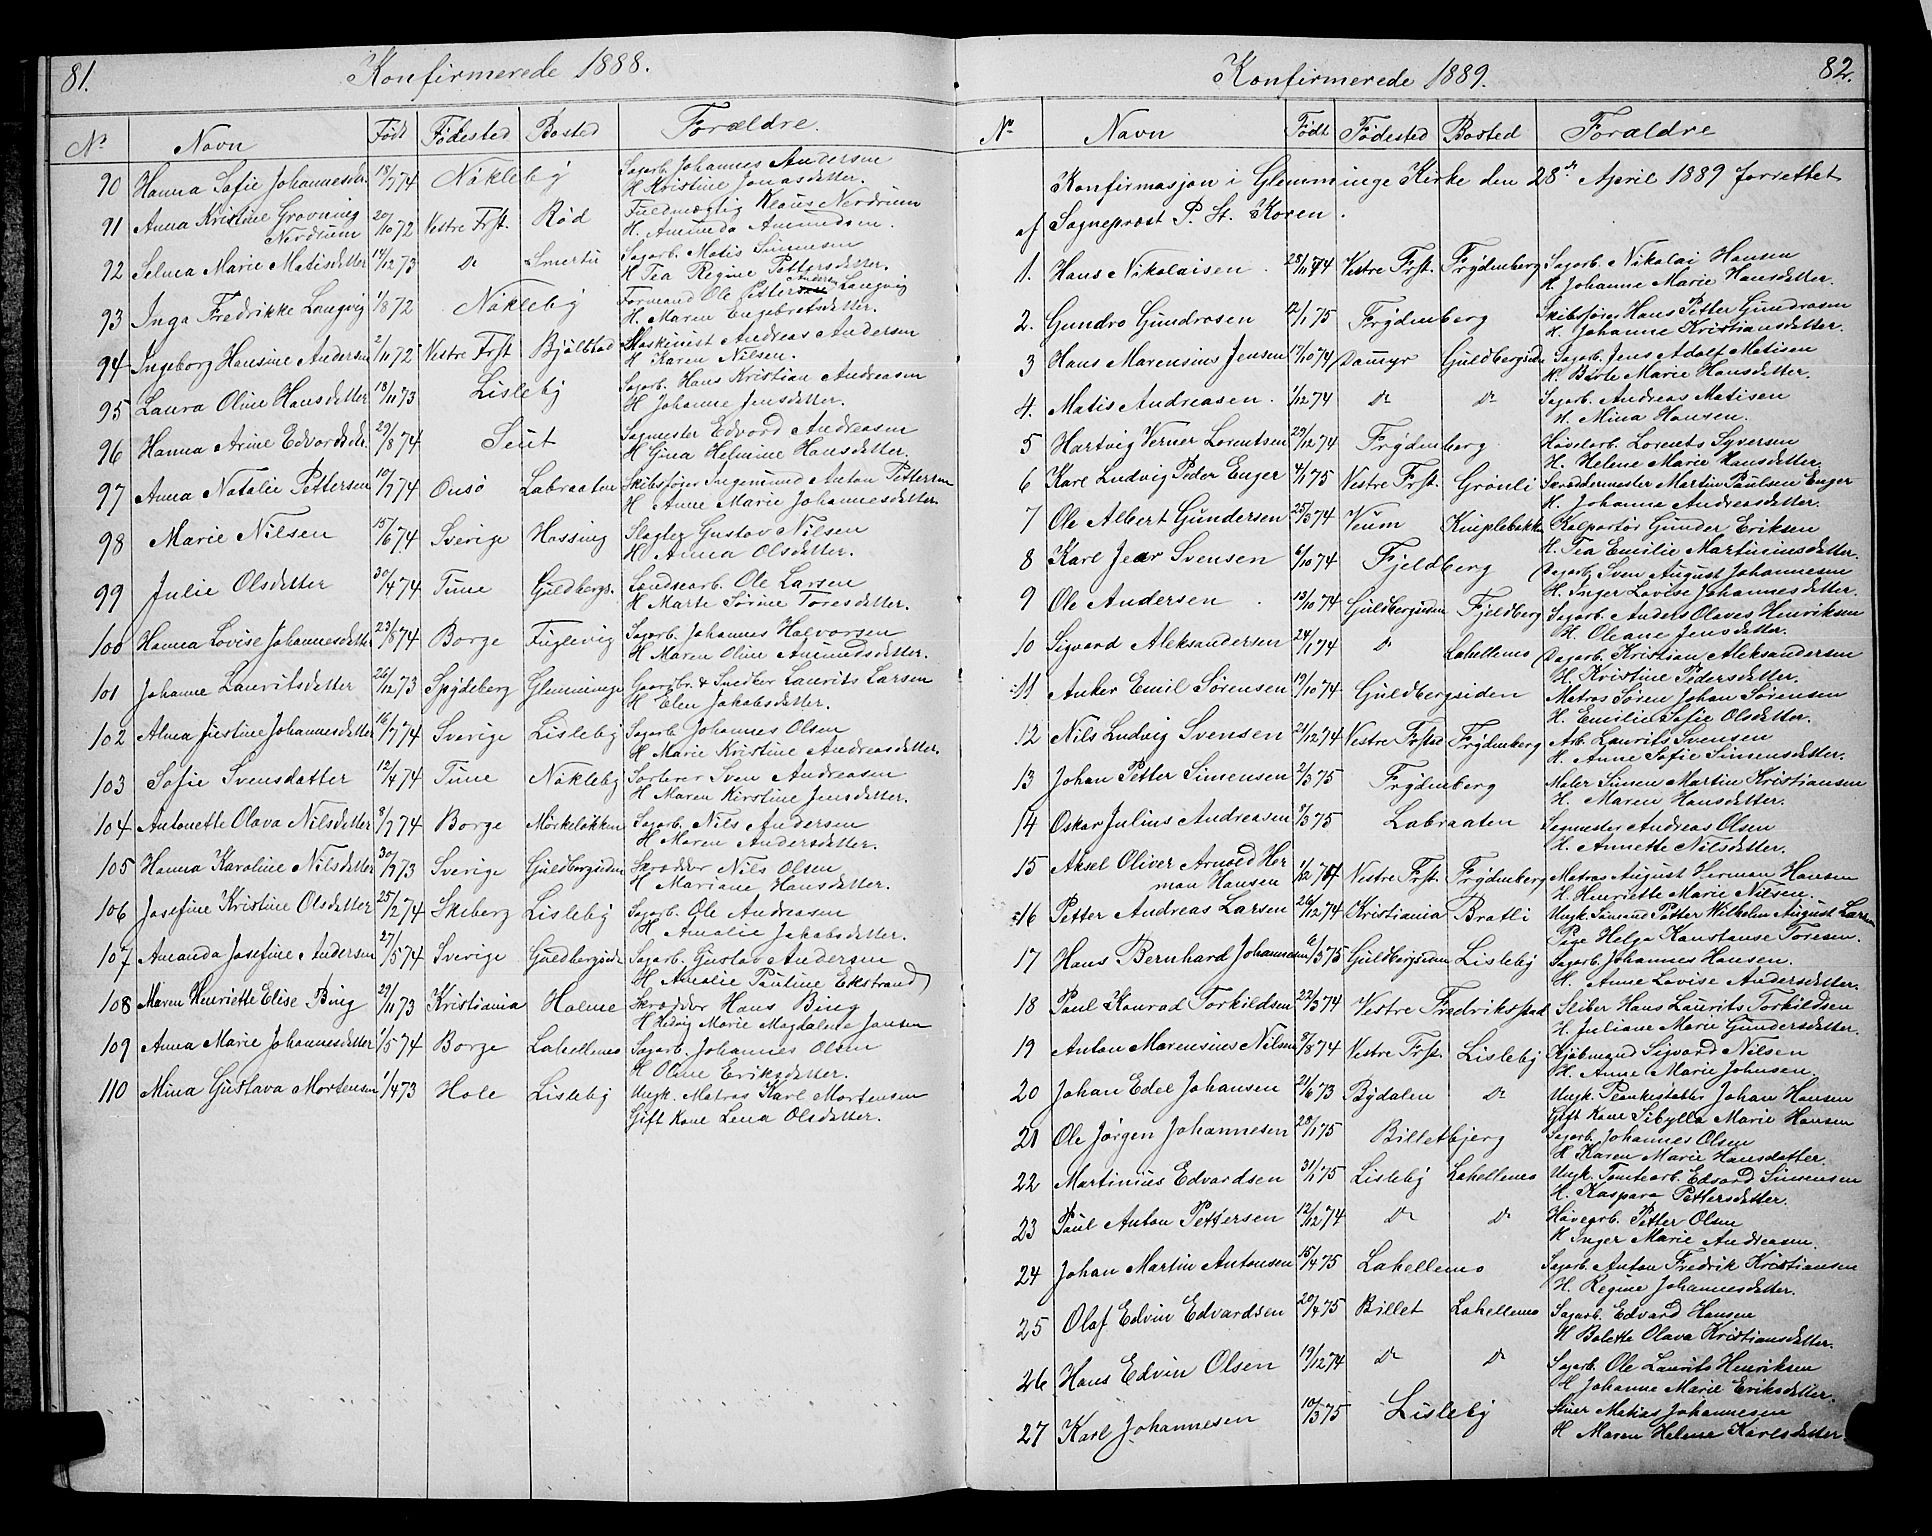 81.
Konfirmerede 1888.
No Navn Født Fødested Bosted Forældre.
90 Hanna Sofie Johannesdtr. 18/7 74 Nøkleby Sagarb. Johannes Andersen
H Kristine Jonasdatter.
91 Anna Kristine Grovning 20/10 72 Vestre Frst. Rød Fuldmægtig Klaus Nerdrum
Nerdrum H. Amunda Amundsen.
92 Selma Marie Matisdatter 14/12 73 do Smertu Sagarb. Matis Simensen
H Tea Regine Pettersdatter.
93 Inga Fredrikke Langvig 1/8 72 Nøkleby Formand Ole Petter Andersen Langvig
H. Maren Engebretsdatter.
94 Ingeborg Hansine Andersen 2/11 72 Vestre Frst Bjølstad Maskinist Andreas Andersen
H Karen Nilsen.
95 Laura Oline Hansdatter 18/11 73 Lisleby Sagarb. Hans Kristian Andreasen
H Johanne Jensdatter.
96 Hanna Arine Edvardsdr. 29/8 74 Seut Sagmester Edvard Andreasen
H Gina Helmine Hansdatter.
97 Anna Natalie Pettersen 10/7 74 Onsø Labraaten Skibsfører Ingemund Anton Pettersen
H Anne Marie Johannesdatter.
98 Marie Nilsen 15/6 74 Sverige Hassing Slagter Gustav Nilsen
H Anna Olsdatter.
99 Julie Olsdatter 30/4 74 Tune Guldbergs. Landsearb. Ole Larsen
H Marte Sørine Toresdatter.
100 Hanna Lovise Johannesdatter 23/8 74 Borge Fuglevig Sagarb. Johannes Halvorsen
H Maren Oline Amundsdatter.
101 Johanne Lauritsdatter 26/12 73 Spydeberg Glemminge Gaardbr. & Snedker Laurits Larsen
H Elen Jakobsdatter.
102 Alma Justine Johannesdatter 16/7 74 Sverige Lisleby Sagarb Johannes Olsen
H Marie Kristine Andreasdatter.
103 Sofie Svensdatter 12/4 74 Tune Nøkleby Sorterer Sven Andreasen
H Maren Kirstine Jensdatter.
104 Antonette Olava Nilsdatter 8/7 74 Borge Mørkeløkken Sagarb. Nils Andersen
H Maren Andersdatter.
105 Hanna Karoline Nilsdatter 30/7 73 Sverige Guldbergsiden Skrædder Nils Olsen
H Mariane Hansdatter.
106 Josefine Kristine Olsdatter 25/2 74 Skiberg Lisleby Sagarb. Ole Andreasen
H Amalie Jakobsdatter.
107 Amanda Josefine Andersen 27/5 74 Sverige Guldbergside Sagarb. Gustav Andersen
H. Amalie Pauline Ekstrand
108 Maren Henriette Elise Bing 29/11 73 Kristiania Holme Skrædder Hans Bing
H Hedvig Marie Magdalene Jansen
109 Anna Marie Johannesdatter 1/5 74 Borge Lahellemo Sagarb. Johannes Olsen
H Oline Eriksdatter.
110 Mina Gustava Mortensen 1/4 73 Hole Lisleby Ungk. Matros Karl Mortensen
Gift Kone Lena Olsdatter.
Konfirmerede 1889.
82.
No Navn Født Fødested Bosted Forældre
Konfirmasjon i Glemminge Kirke den 28de April 1889 forrettet
af Sogneprest P. St. Koren.
1. Hans Nikolaisen. 28/11 74 Vestre Frst. Frydenberg Sagarb. Nikolai Hansen
H. Johanne Marie Hansdatter.
2. Gundro Gundrosen 12/1 75 Frydenberg Skibsfører Hans Petter Gundrosen
H. Johanne Kristiansdatter.
3 Hans Marensius Jensen 17/10 74 Damyr Guldbergside Sagarb. Jens Adolf Matisen
H. Berte Marie Hansdatter.
4. Matis Andreasen. 1/12 74 do do Sagarb. Andreas Matisen
H. Mina Hansen.
5 Hartvig Verner Lorentsen 29/12 74 Frydenberg Høvelarb. Lorents Syversen
H. Helene Marie Hansdatter.
6 Karl Ludvig Peder Enger 4/1 75 Vestre Frst. Grønli Skræddermester Martin Paulsen Enger
H. Johanna Andreasdatter.
7 Ole Albert Gundersen 25/3 74 Veum Kniplebakke Kolportør Gunder Eriksen
H. Tea Emilie Martiniusdatter.
8 Karl Svensen 6/10 74 Fjeldberg Dagarb. Sven August Johannesen
H. Inger Lovise Johannesdatter.
9 Ole Andersen. 13/10 74 Guldbergsiden Fjeldberg Sagarb. Anders Olaves Henriksen
H. Oleane Jensdatter.
10 Sigvard Aleksandersen 24/1 74 do Lahellemo Dagarb. Kristian Aleksandersen
H. Kristine Pedersdatter.
11 Anker Emil Sørensen 19/10 74 Guldbergsiden Matros Søren Johan Sørensen
H. Emilie Sofie Olsdatter.
12 Nils Ludvig Svensen 21/12 74 Vestre Frstad Frydenberg Arb. Laurits Svensen
H. Anne Sofie Simensdatter.
13 Johan Petter Simensen 2/3 75 Frydenberg Maler Simen Martin Kristiansen
H. Maren Hansdatter.
14 Oskar Julius Andreasen 8/3 75 Labraaten Sagmester Andreas Olsen
H. Annette Nilsdatter.
15 Aksel Oliver Arnold Her 1/12 74 Vestre Frst. Frydenberg Matros August Herman Hansen
man Hansen H. Henriette Marie Nilsen.
16 Petter Andreas Larsen 26/12 74 Kristiania Bratli Ungk. Sømand Petter Wilhelm August Larsen
Pige Helga Konstanse Toresen.
17 Hans Bernhard Johannesen 6/3 75 Guldbergsiden Lisleby Sagarb. Johannes Hansen.
H. Anne Lovise Andersdatter.
18 Paul Konrad Torkildsen 22/3 74 Vestre Fredrikstad Sliber Hans Laurits Torkildsen
H. Juliane Marie Gundersdatter.
19 Anton Marensius Nilsen 9/8 74 Vestre Frst. Lisleby Kjøbmand Sigvard Nilsen
H. Anne Marie Johnsen.
20 Johan Edel Johansen 21/6 73 Bydalen do Ungk. Plankestabler Johan Hansen
Gift Kone Sibylla Marie Hansen
21 Ole Jørgen Johannesen 28/1 75 Billetbjerg Sagarb. Johannes Olsen
H Karen Marie Hansdatter.
22 Martinius Edvardsen 31/1 75 Lisleby Lahellemo Ungk. Tomtearb. Edvard Simensen
H. Kaspara Pettersdatter.
23 Paul Anton Pettersen 12/12 74 do do Høvlearb. Petter Olsen
H Inger Marie Andreasen.
24 Johan Martin Antonsen 15/4 75 Lahellemo Sagarb. Anton Fredrik Kristiansen
H. Regine Johannesdatter.
25 Olaf Edvin Edvardsen 20/4 75 Billet Lahellemo Sagarb. Edvard Hansen
H Bolette Olava Kristiansdatter.
26 Hans Edvin Olsen 19/12 74 do do Sagarb. Ole Laurits Henriksen
H Johanne Marie Eriksdatter.
27 Karl Johannesen 10/3 75 Lisleby Stuer Matias Johannesen
H Maren Helene Karlsdatter.